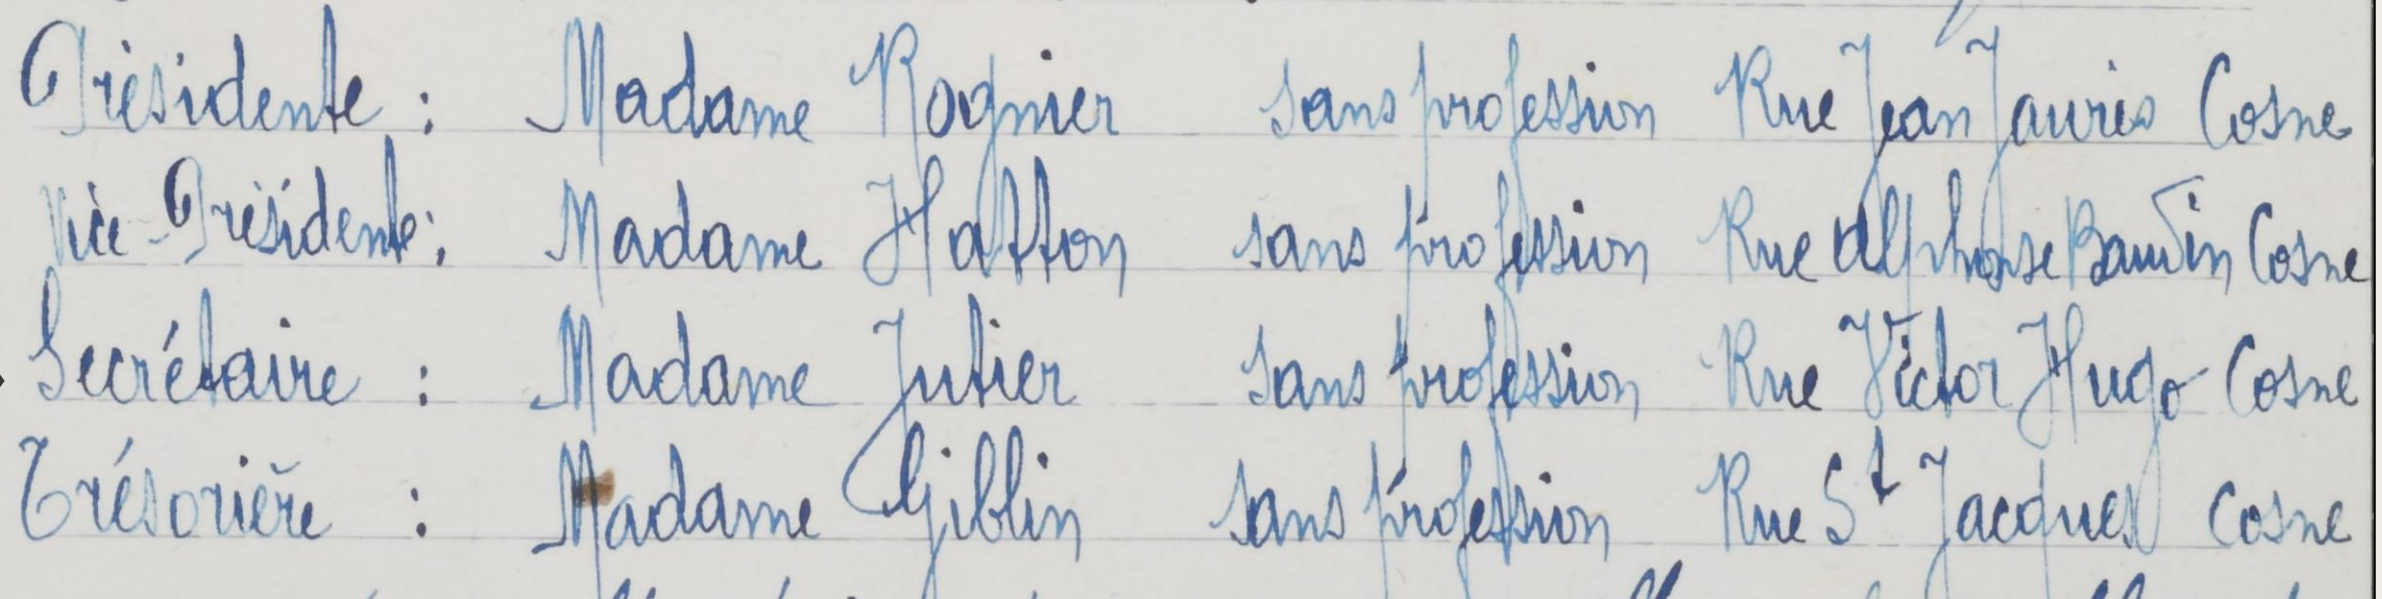 Présidente : Madame Rognier sans profession Rue Jean Jaurès Cosne
Vice-Présidente : Madame Hatton sans profession Rue Alphonse Baudin Cosne
Secrétaire : Madame Jutier sans profession Rue Victor Hugo Cosne
Trésorière : Madame Giblin sans profession Rue St Jacques Cosne